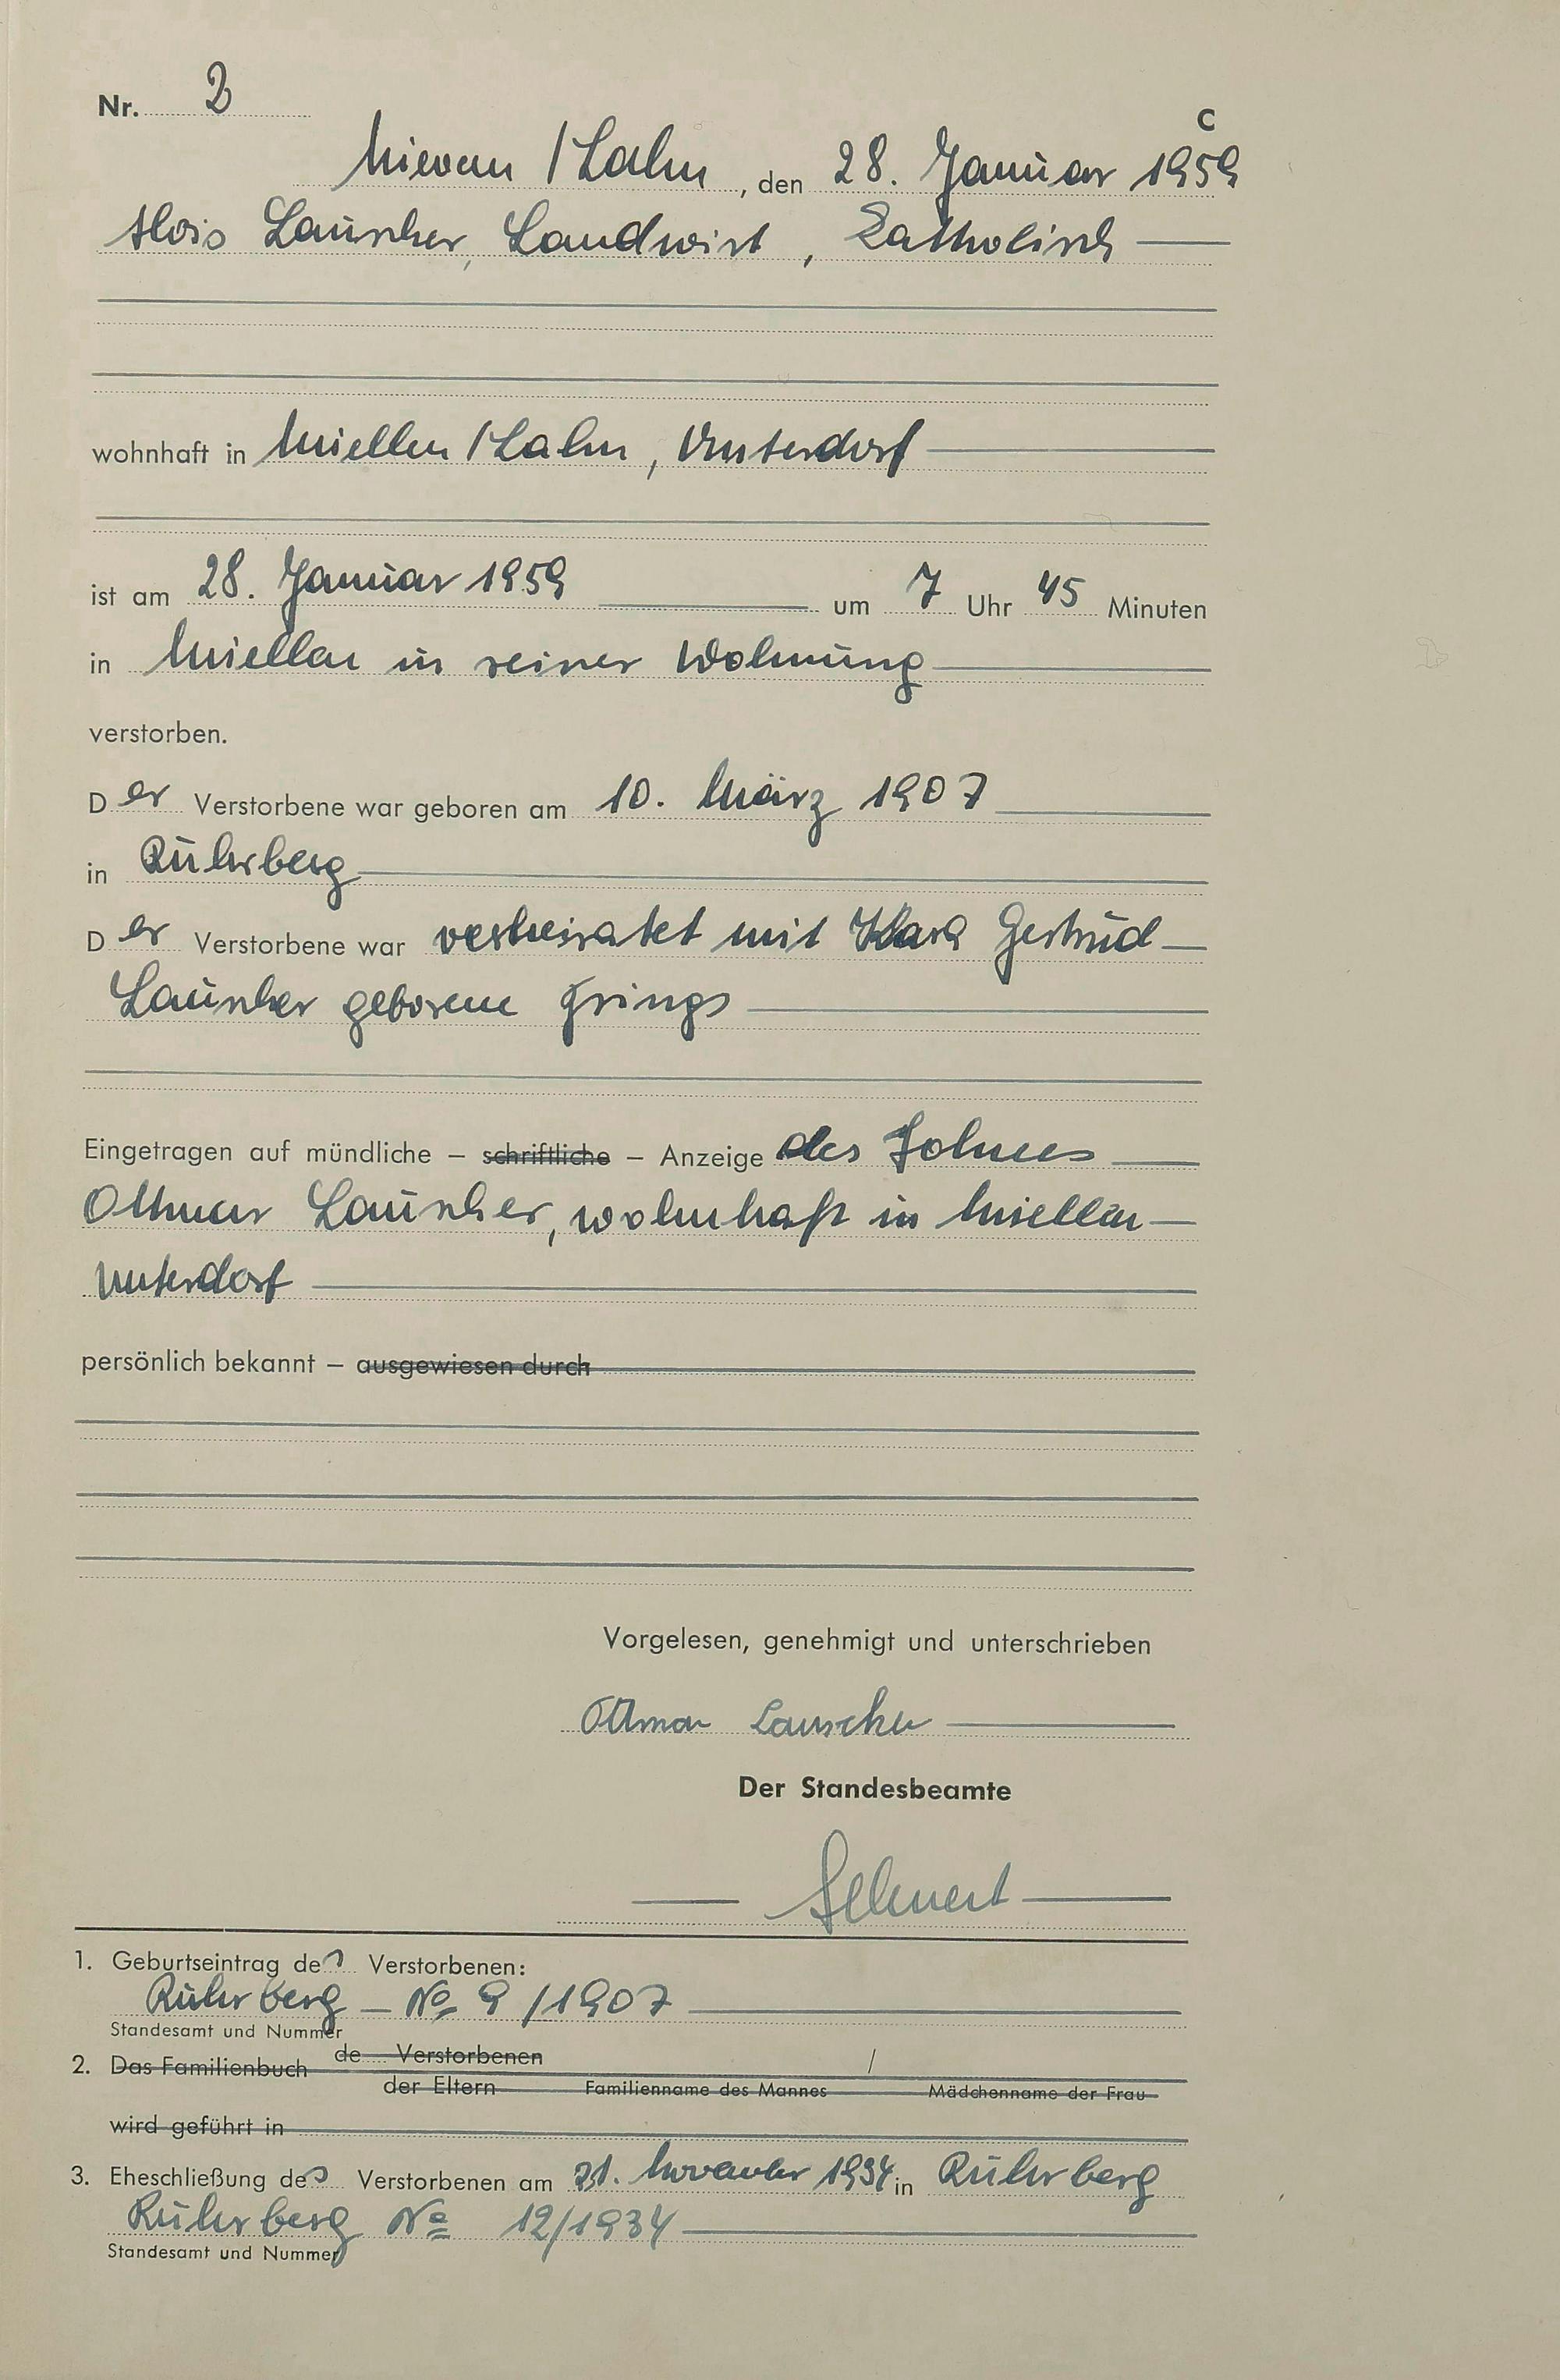 Nr. 2
C
Nievern / Lahn, den 28. Januar 1959
Alois Lauscher, Landwirt, katholisch
wohnhaft in Miellen / Lahn, Unterdorf
ist am 28. Januar 1959 um 7 Uhr 45 Minuten
in Miellen in seiner Wohnung
verstorben.
Der Verstorbene war geboren am 10. März 1907
in Ruhrberg
Der Verstorbene war verheiratet mit Klara Gertrud
Lauscher geborene Grings
Eingetragen auf mündliche – schriftliche – Anzeige des Sohnes
Ottmar Lauscher, wohnhaft in Miellen
Unterdorf
persönlich bekannt – ausgewiesen durch
Vorgelesen, genehmigt und unterschrieben
Ottmar Lauscher
Der Standesbeamte
1. Geburtseintrag des Verstorbenen:
Ruhrberg – No 9 / 1907
Standesamt und Nummer
2. Das Familienbuch de Verstorbenen /
der Eltern Familienname des Mannes Mädchenname der Frau
wird geführt in
3. Eheschließung des Verstorbenen am 21. November 1934 in Ruhrberg
Ruhrberg No 12/1934
Standesamt und Nummer